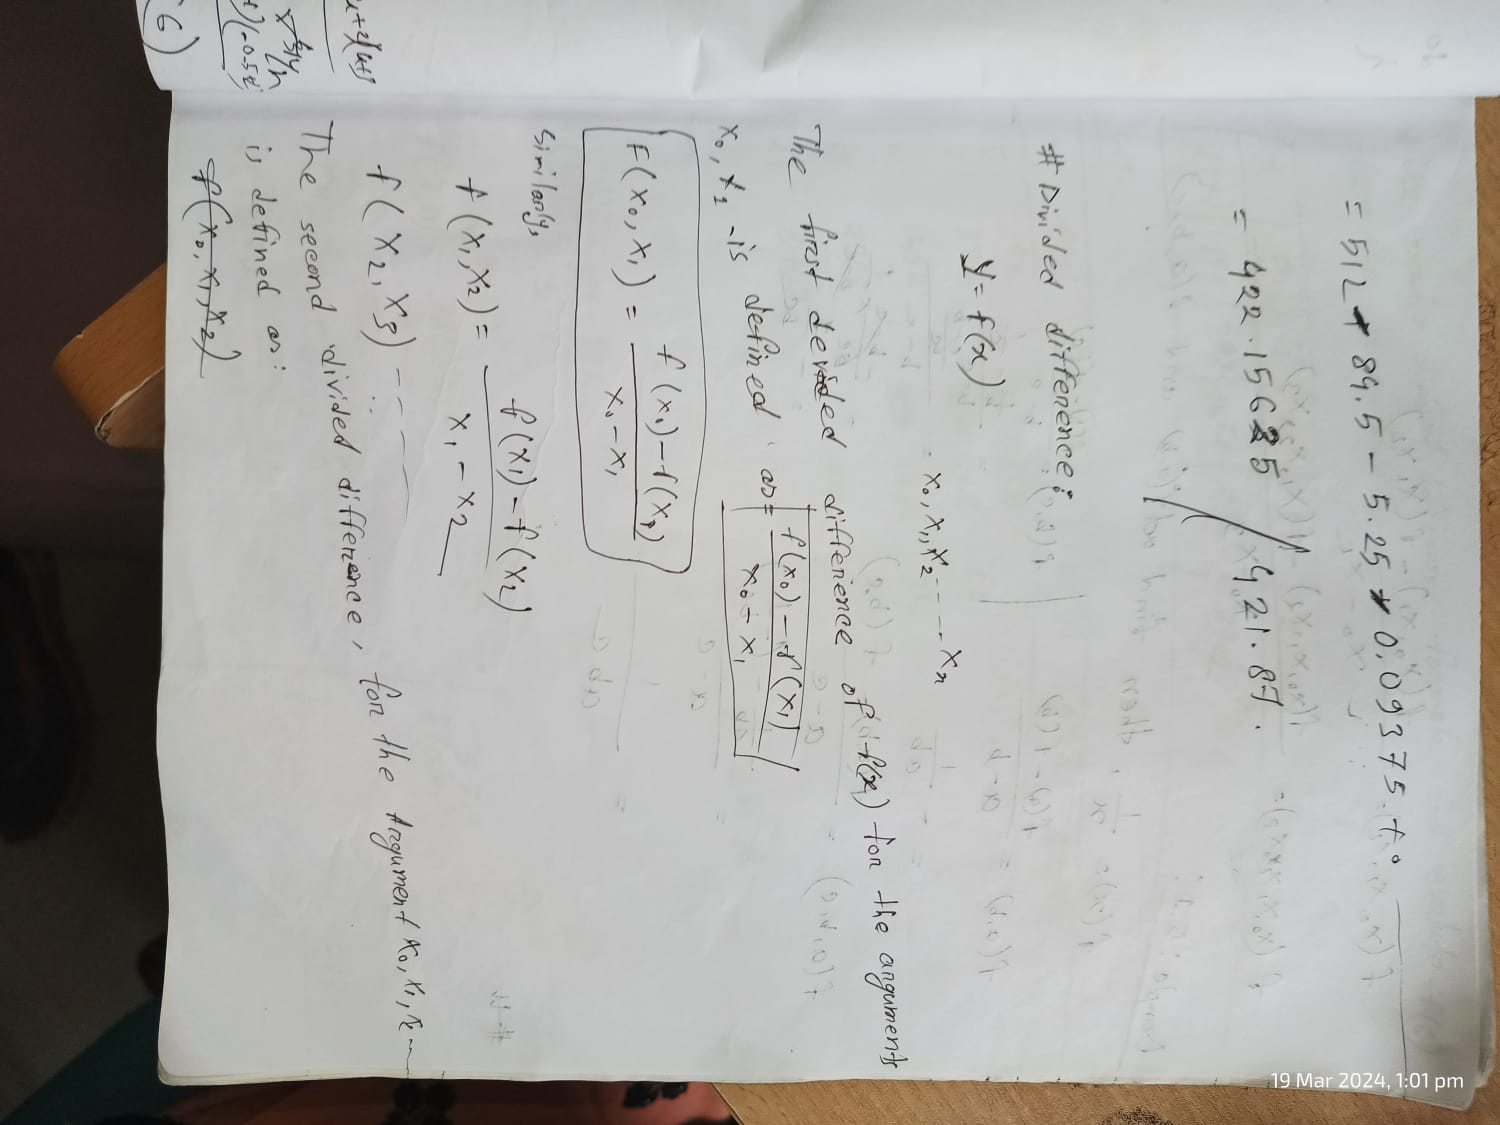 = 512 + 89.5 - 5.25 + 0.09375 . to
= 422.15625 // 421.87 .
# Divided difference :
y = f(x) x0, x1, x2 - - - xn
The first devided difference of f(x) for the arguments
x0, x1 is defined as = f(x0) - f(x1) / x0 - x1
F(x0, x1) = f(x0) - f(x1) / x0 - x1
Similarly,
f(x1, x2) = f(x1) - f(x2) / x1 - x2
f(x2, x3) - - - -
The second divided difference, for the Argument x0, x1, x2
is defined as:
f(x0, x1, x2)
6)
19 Mar 2024, 1:01 pm